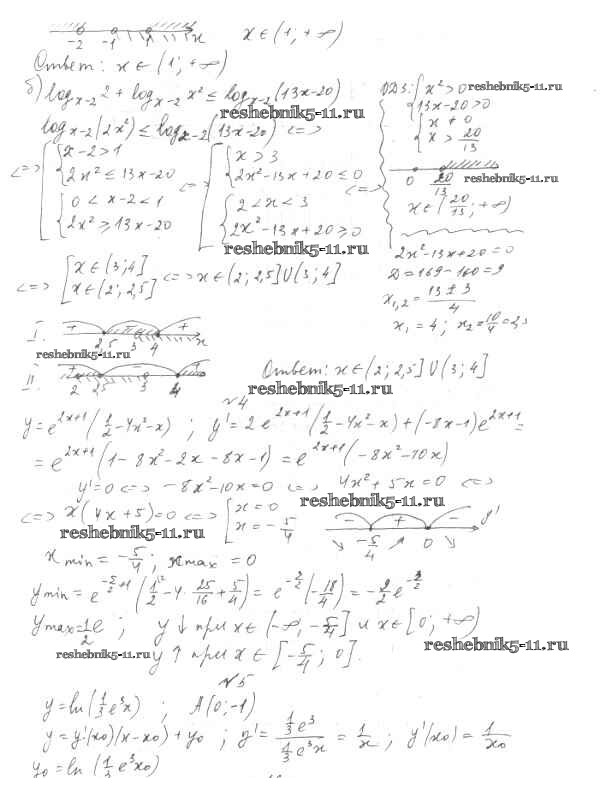 -2 -1 1 x x ∈ (1; +∞)
Ответ: x ∈ (1; +∞)
б) log_{x-2} 2 + log_{x-2} x² ≤ log_{x-2}(13x-20)
ОДЗ: { x² > 0 reshebnik5-11.ru
13x-20 > 0
reshebnik5-11.ru
log_{x-2}(2x²) ≤ log_{x-2}(13x-20) <=>
{ x ≠ 0
x > 20/13
<=> [ { x-2 > 1
2x² ≤ 13x-20
{ 0 < x-2 < 1
2x² ≥ 13x-20
<=> [ { x > 3
2x²-13x+20 ≤ 0
{ 2 < x < 3
2x²-13x+20 ≥ 0
<=>
0 20/13 reshebnik5-11.ru
x ∈ (20/13; +∞)
reshebnik5-11.ru
2x²-13x+20=0
D=169-160=9
x_{1,2} = (13 ± 3)/4
x₁ = 4; x₂ = 10/4 = 2,5
<=> [ x ∈ (3; 4]
x ∈ (2; 2,5] <=> x ∈ (2; 2,5] ∪ (3; 4]
I. + - + 2,5 3 4 x
reshebnik5-11.ru
II. + - + 2 2,5 3 4
Ответ: x ∈ (2; 2,5] ∪ (3; 4]
reshebnik5-11.ru
№4
y = e^{2x+1}(1/2 - 4x² - x); y' = 2e^{2x+1}(1/2 - 4x² - x) + (-8x-1)e^{2x+1} =
= e^{2x+1}(1 - 8x² - 2x - 8x - 1) = e^{2x+1}(-8x² - 10x)
y' = 0 <=> -8x² - 10x = 0 <=> 4x² + 5x = 0 <=>
reshebnik5-11.ru
<=> x(4x+5) = 0 <=> [ x = 0
x = -5/4
- + - y'
-5/4 0
reshebnik5-11.ru
x min = -5/4; x max = 0
y min = e^{-5/2+1}(1/2 - 4·25/16 + 5/4) = e^{-3/2}(-18/4) = -9/2 e^{-3/2}
y max = 1/2 e; y ↓ при x ∈ (-∞, -5/4] и x ∈ [0; +∞)
reshebnik5-11.ru
reshebnik5-11.ru y ↑ при x ∈ [-5/4; 0].
№5
y = ln(1/3 e³x); A(0; -1)
y = y'(x₀)(x-x₀) + y₀; y' = (1/3 e³)/(1/3 e³x) = 1/x; y'(x₀) = 1/x₀
y₀ = ln(1/3 e³x₀)